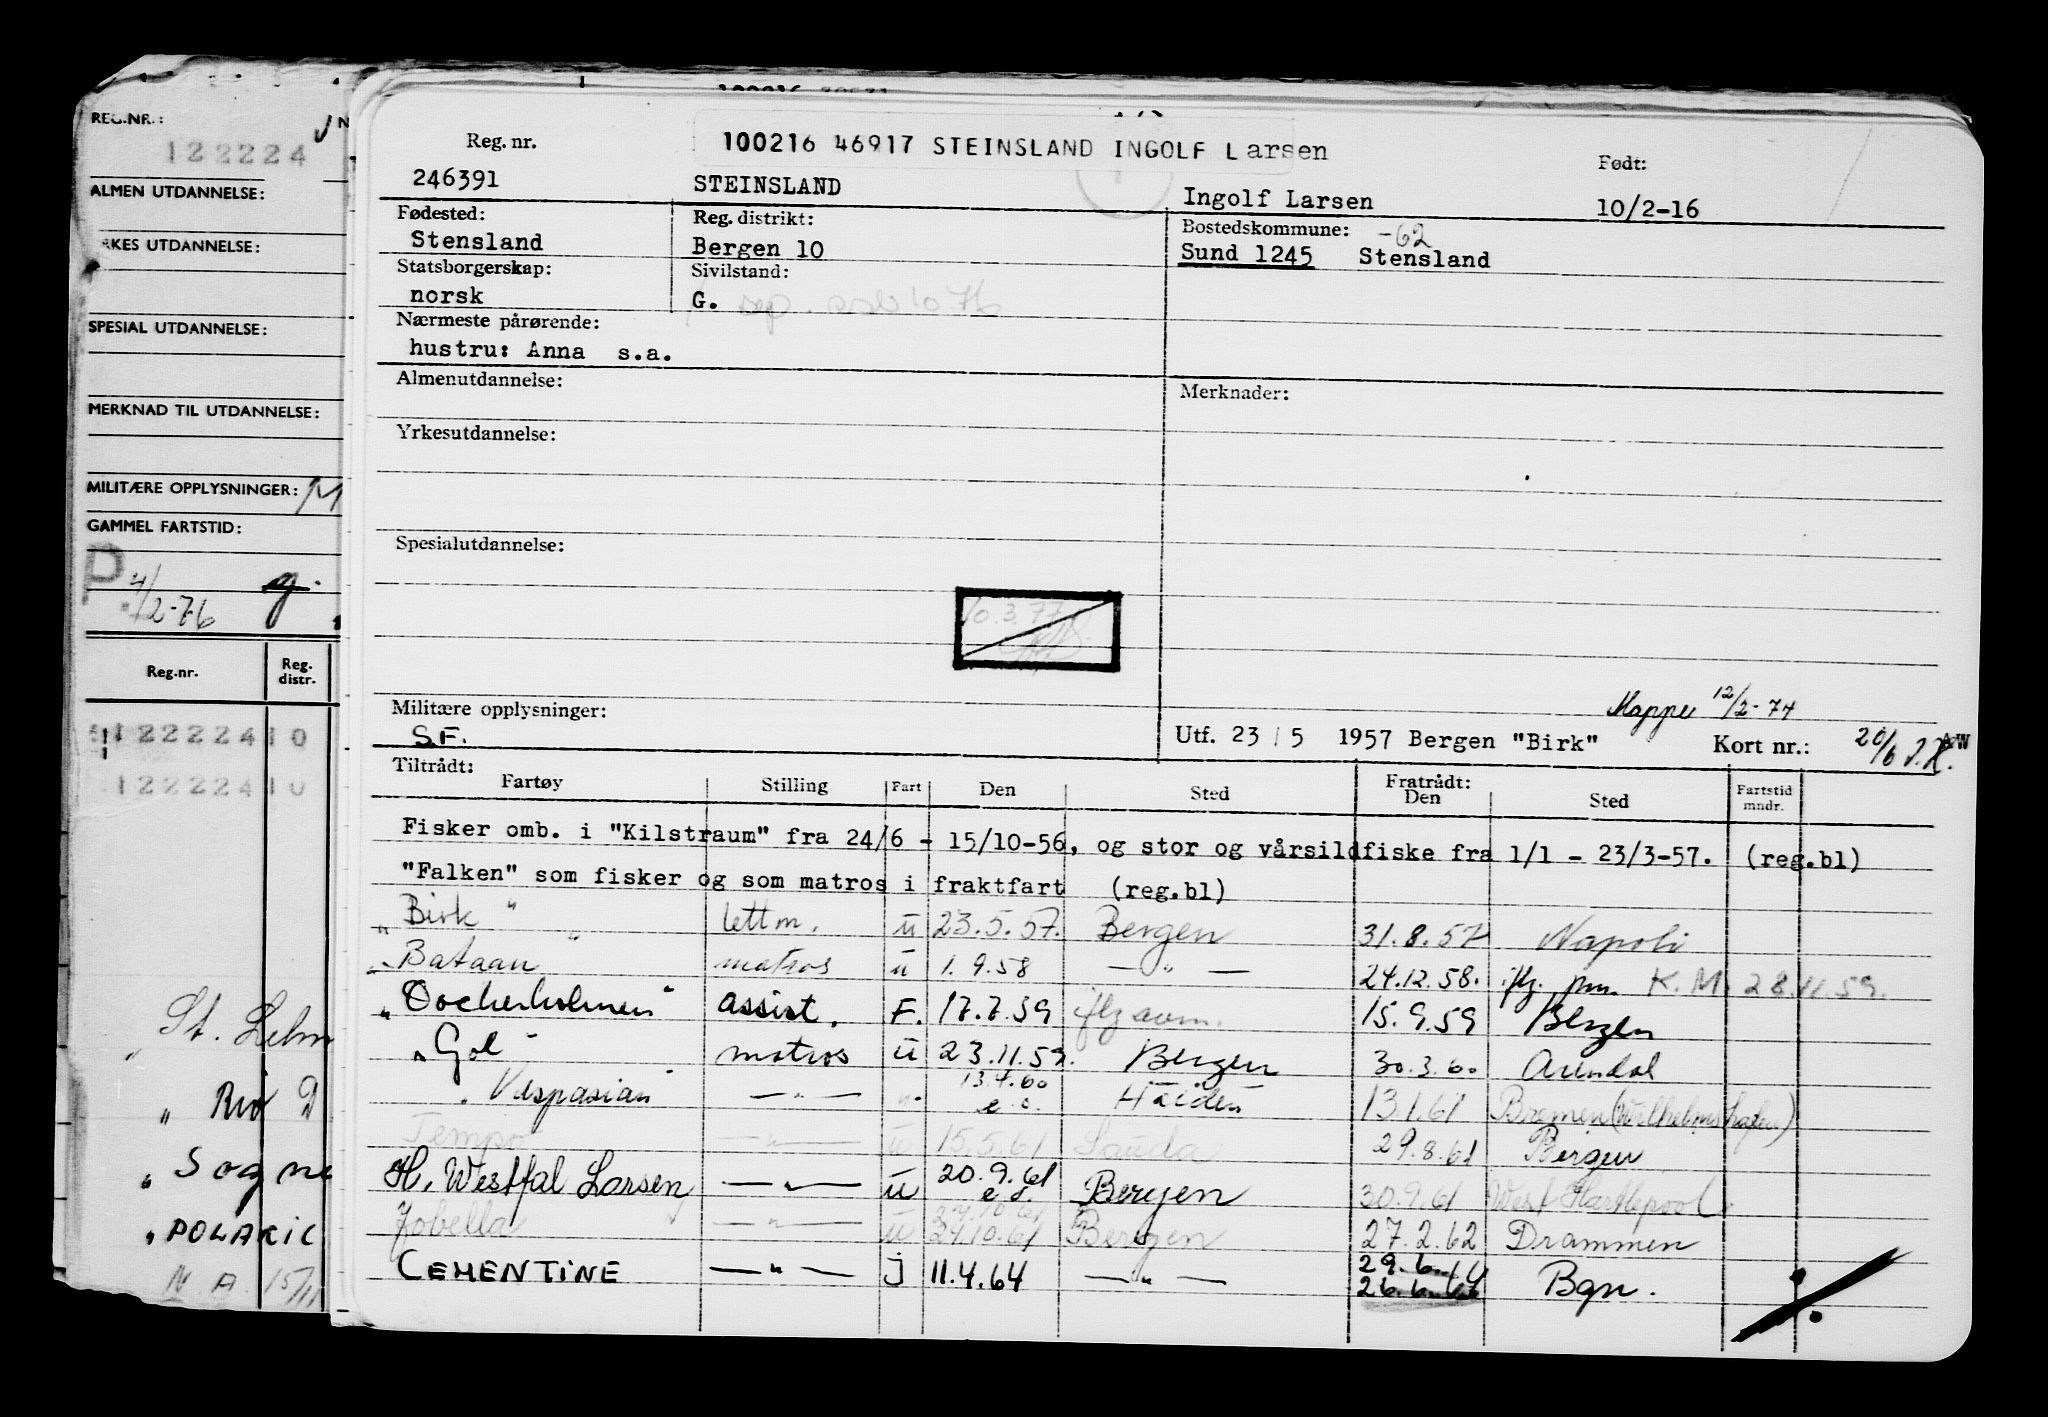 REG.NR.:
122224
ALMEN UTDANNELSE:
RKES UTDANNELSE:
SPESIAL UTDANNELSE:
MERKNAD TIL UTDANNELSE:
MILITÆRE OPPLYSNINGER: M
GAMMEL FARTSTID:
P 4/2-76
Reg.nr. Reg. distr.
122224 10
122224 10
„ St. Helm
„ Rio D
„ Sogne
„ POLARIC
N A 15/11
100216 46917 STEINSLAND INGOLF Larsen
Reg. nr. Født:
246391 STEINSLAND Ingolf Larsen 10/2-16
Fødested: Reg. distrikt: Bostedskommune: -62
Stensland Bergen 10 Sund 1245 Stensland
Statsborgerskap: Sivilstand:
norsk G. sep. 10 76
Nærmeste pårørende:
hustru: Anna s.a.
Almenutdannelse: Merknader:
Yrkesutdannelse:
Spesialutdannelse:
10.3.77
Militære opplysninger: Mappe 12/2-74
S.F. Utf. 23/5 1957 Bergen "Birk" Kort nr.: 20/6 J.K. AW
Tiltrådt: Fratrådt:
Fartøy Stilling Fart Den Sted Den Sted Fartstid mndr.
Fisker omb. i "Kilstraum" fra 24/6 - 15/10-56, og stor og vårsildfiske fra 1/1 - 23/3-57. (reg.bl)
"Falken" som fisker og som matros i fraktfart (reg.bl)
„ Birk " lettm. u 23.5.57. Bergen 31.8.57 Napoli
„ Bataan " matros u 1.9.58 — " — 24.12.58. iflg. pm. K.M. 28.11.59.
„ Oocherholmen" assist. F. 17.7.59 iflg avm. 15.9.59 Bergen
„ Gol " matros u 23.11.59. Bergen 30.3.60 Arendal
„ Vespasian " — " — " 13.4.60 e.o. Halden 13.1.61 Bremen (Wilhelmshafen)
Tempo — " — u 15.5.61 Sauda 29.8.61 Bergen
H. Westfal Larsen — " — u 20.9.61 e.o. Bergen 30.9.61 West Hartlepool
Jobella — " — u 24.10.61 Bergen 27.2.62 Drammen
CEMENTINE — " — j 11.4.64 — " — 29.6.64 Bgn.
26.6.64